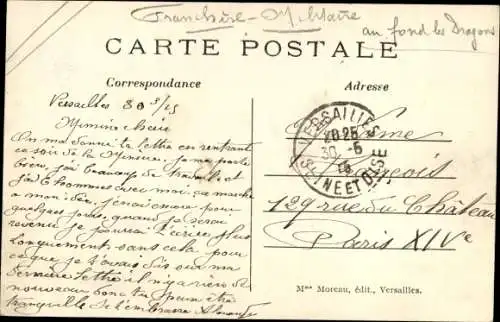 Franchise - Militaire
au fond les Dragons
CARTE POSTALE
Correspondance
Adresse
Versailles 30 5/15
Mimine chérie
On ma donné ta lettre en rentrant
ce soir de la Manœuvre. Je me porte
bien, j'ai beaucoup de travail et
j'ai hommes avec moi, ça marche
a mon
quelques jours, quand je serai
revenu je pourrai t'écrire plus
longuement, sans cela pour
ce que je t'avais dis sur ma
dernière lettre il n'y a rien de
nouveau donc tu peux être
tranquille Je t'embrasse
VERSAILLES
20 25
30 -5
15
SEINE ET OISE
129 rue du Château
Paris XIVe
Mme Moreau, édit., Versailles.